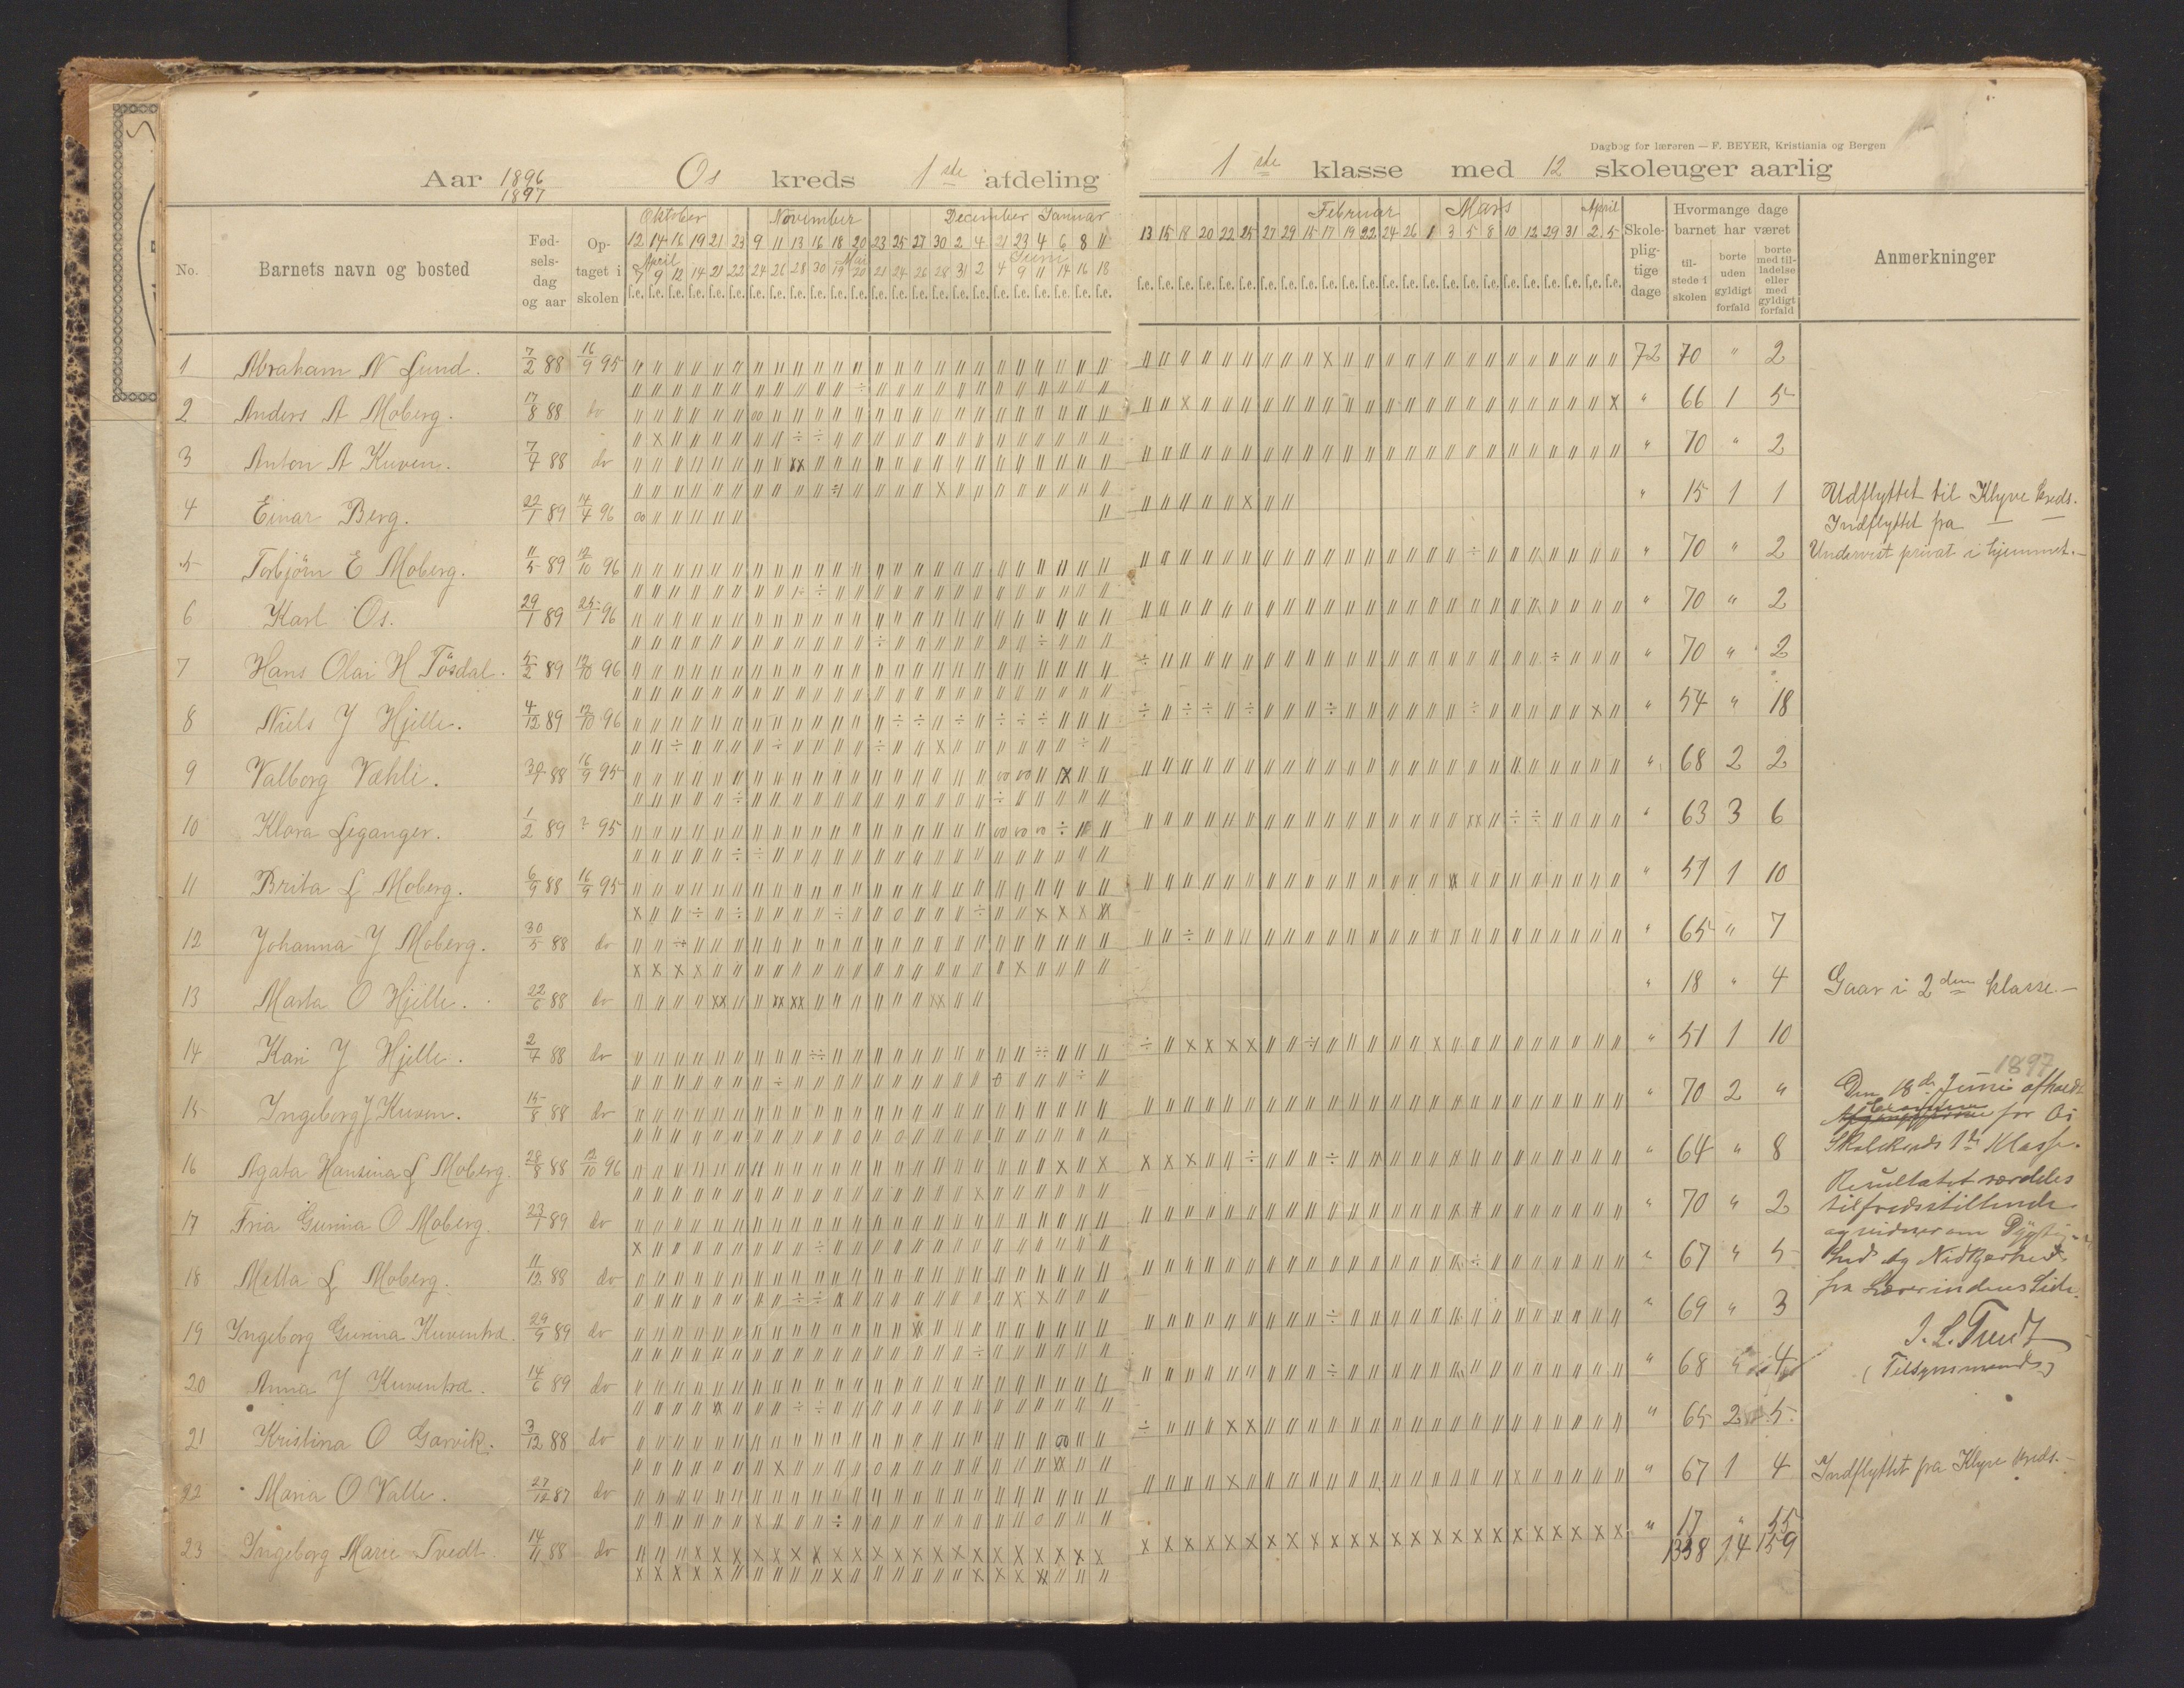 Dagbog for læreren — F. BEYER, Kristiania og Bergen
Aar 1896 Os kreds 1ste afdeling 1ste klasse med 12 skoleuger aarlig
1897
No. Barnets navn og bosted Fødselsdag og aar Optaget i skolen
Oktober November December Januar Februar Mars April
12 14 16 19 21 23 9 11 13 16 18 20 23 25 27 30 2 4 21 23 4 6 8 11 13 15 18 20 22 25 27 29 15 17 19 22 24 26 1 3 5 8 10 12 29 31 2 5
April Mai Juni
7 9 12 14 21 22 24 26 28 30 19 20 21 24 26 28 31 2 4 9 11 14 16 18
f.e.
Skolepligtige dage
Hvormange dage barnet har været
tilstede i skolen
borte uden gyldigt forfald
borte med tilladelse eller med gyldigt forfald
Anmerkninger
1 Abraham N Lund. 7/2 88 16/9 95 72 70 " 2
2 Anders A Moberg. 17/8 88 do " 66 1 5
3 Anton A Kuven. 7/7 88 do " 70 " 2
4 Einar Berg. 22/1 89 14/4 96 " 15 1 1 Udflyttet til Klyve kreds.
Indflyttet fra —
5 Torbjörn E Moberg. 11/5 89 12/10 96 " 70 " 2 Undervist privat i hjemmet.—
6 Karl Os. 29/1 89 25/1 96 " 70 " 2
7 Hans Olai H Tösdal. 5/2 89 12/10 96 " 70 " 2
8 Niels J Hjelle. 4/12 89 12/10 96 " 54 " 18
9 Valborg Væhli. 88 16/9 95 " 68 2 2
10 Klara Leganger. 1/2 89 ? 95 " 63 3 6
11 Brita L Moberg. 6/9 88 16/9 95 " 57 1 10
12 Johanna J Moberg. 30/5 88 do " 65 " 7
13 Marta O Hjelle. 22/6 88 do " 18 " 4 Gaar i 2den klasse.—
14 Kari J Hjelle. 2/7 88 do " 51 1 10
15 Ingeborg J Kuven. 15/8 88 do " 70 2 "
16 Agata Hansina L Moberg. 28/8 88 12/10 96 " 64 " 8
17 Fria Gurina O Moberg. 23/1 89 do " 70 " 2
18 Metta L Moberg. 11/12 88 do " 67 " 5
19 Ingeborg Gurina Kuventræ. 29/9 89 do " 69 " 3
20 Anna J Kuventræ. 14/6 89 do " 68 " 4
21 Kristina O Garvik. 3/12 88 do " 65 2 5
22 Maria O Valle. 27/12 87 do " 67 1 4 Indflyttet fra Klyve kreds.—
23 Ingeborg Marie Tvedt. 14/11 88 do " 17 " 55
1338 14 159
1897
Den 18de Juni afholdt
Examen for Os
Skolekreds 1ste Klasse.
Resultatet
tilfredsstillende
og vidner om Dygtig-
hed og Nidkjærhed
fra Lærerindens Side.
J. L. Tvedt
(Tilsynsmand)